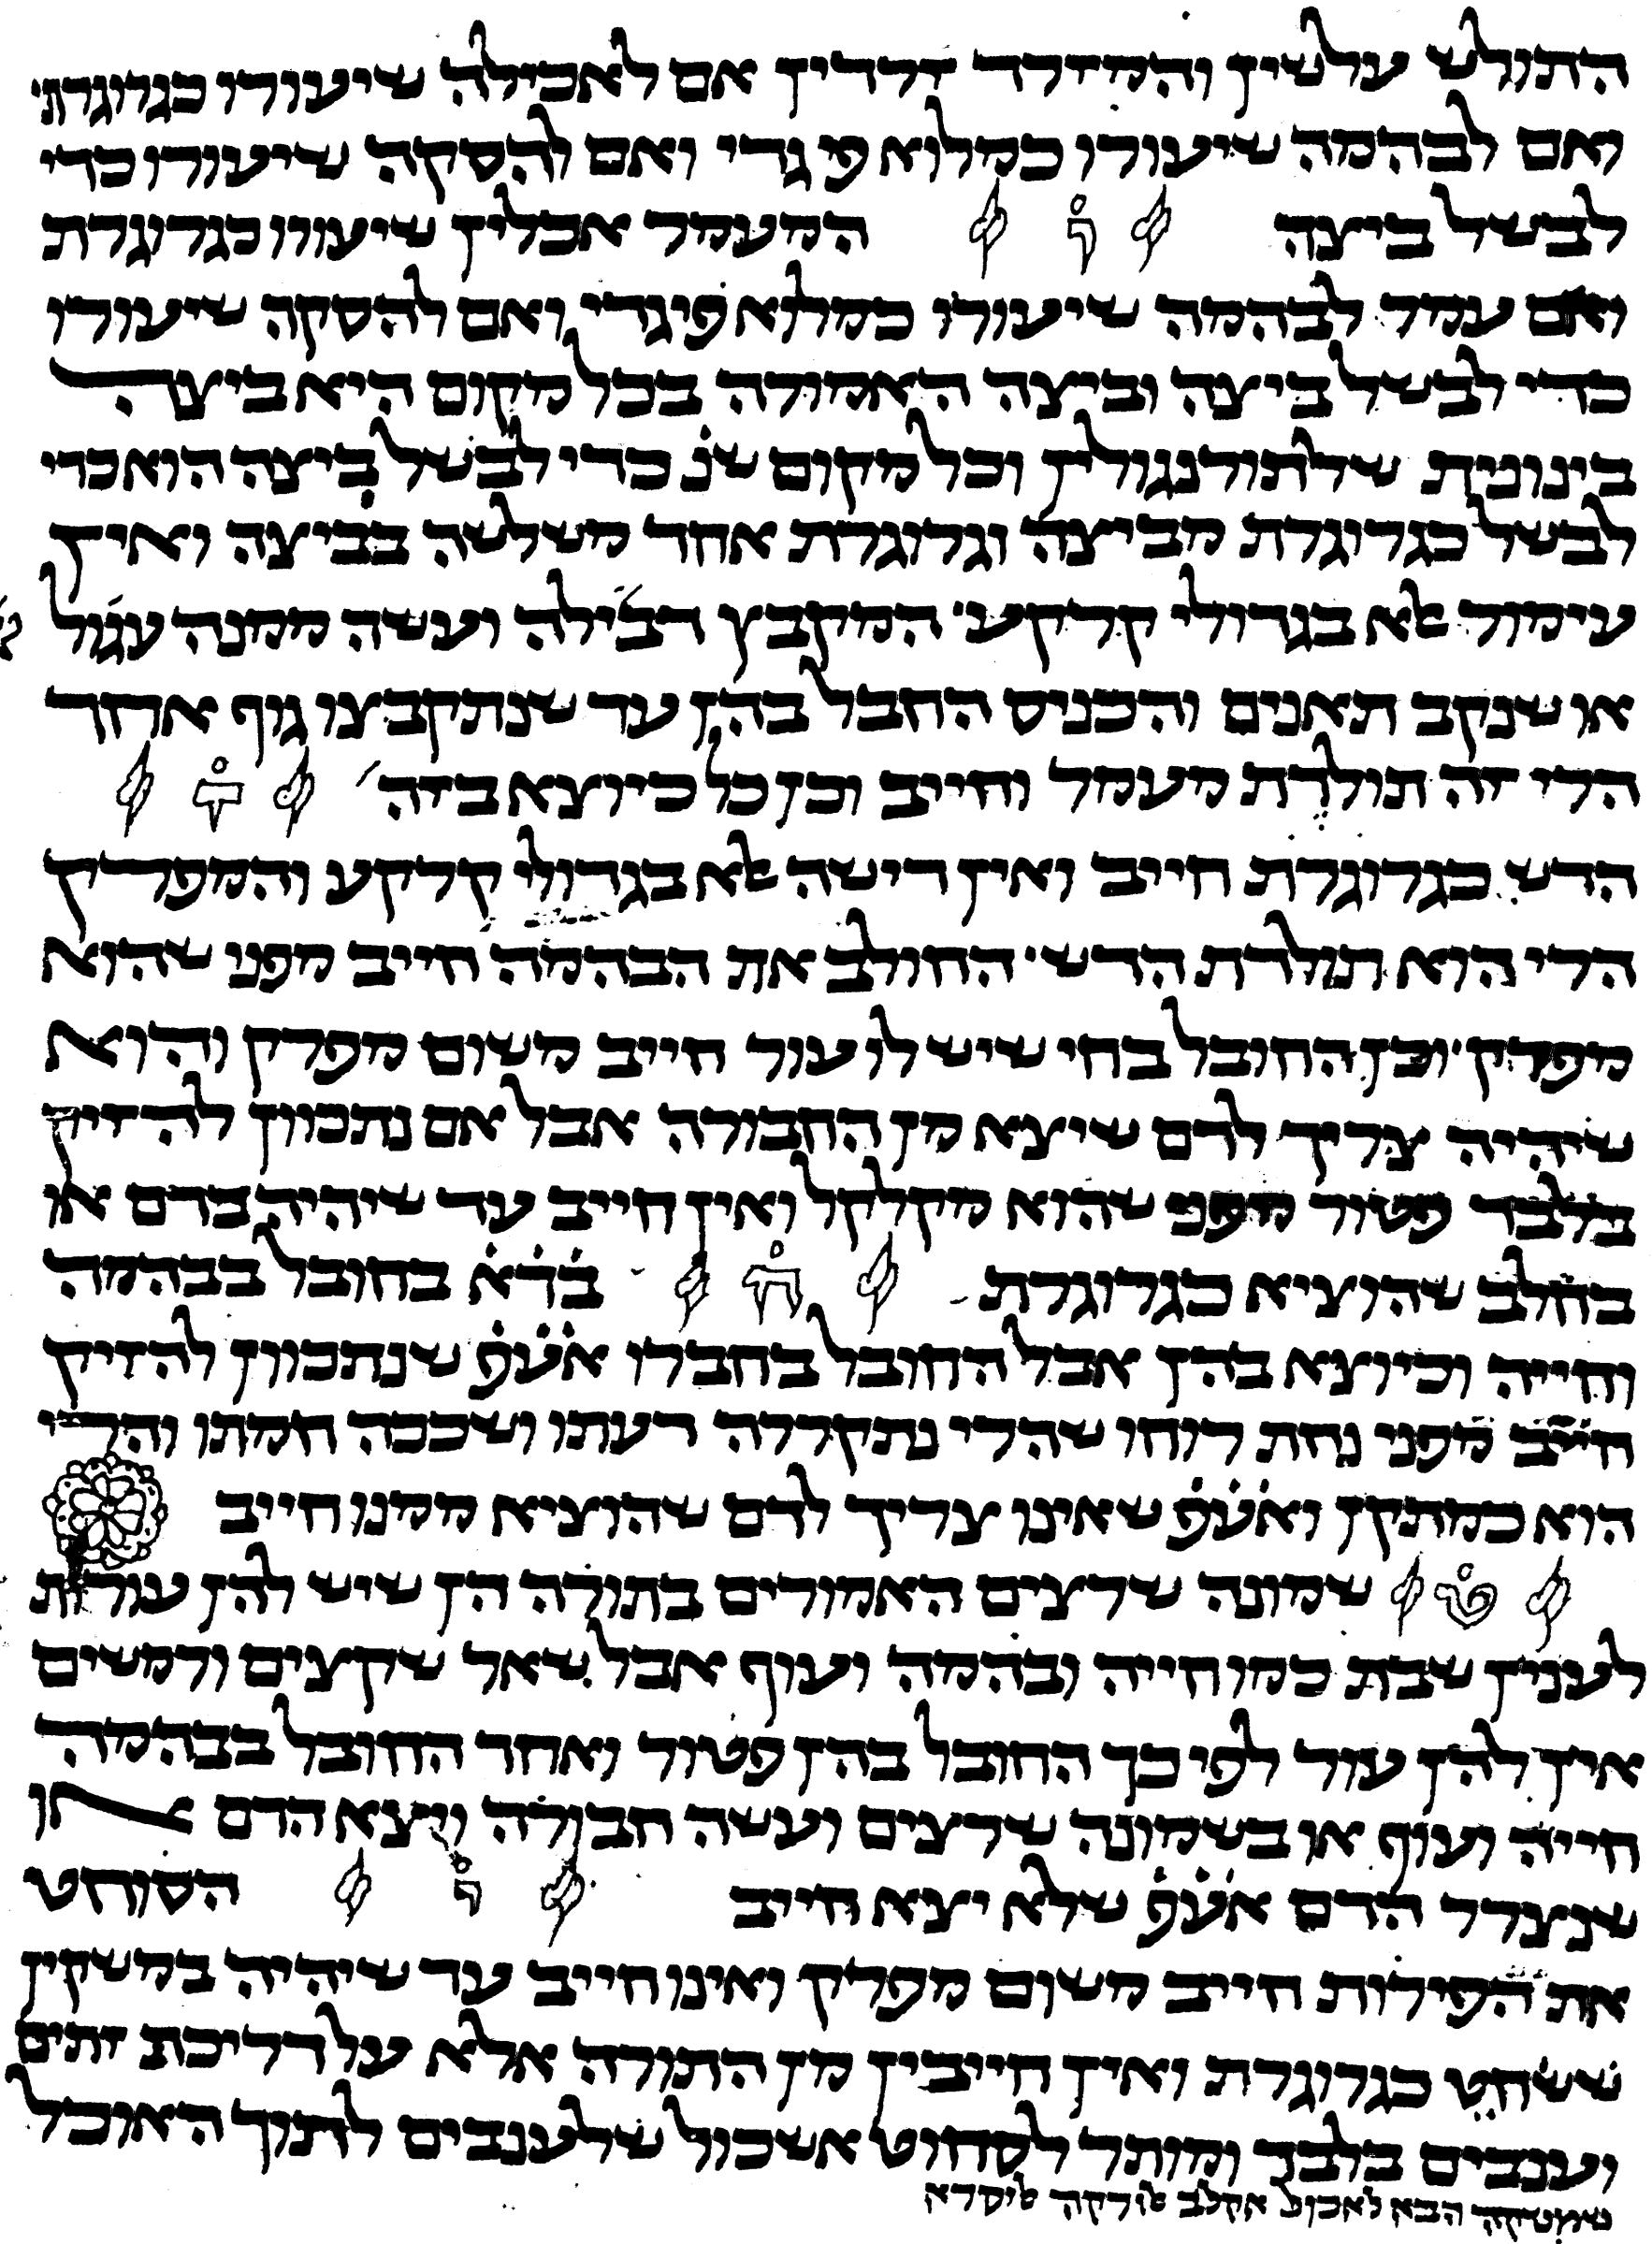 התולש עלשין והמזרד זרדין אם לאכילה שיעורו כגרוגרת
ואם לבהמה שיעורו כמלוא פי גדי ואם להסקה שיעורו כדי
לבשל ביצה ה המעמר אכלין שיעורו כגרוגרת
ואם עמר לבהמה שיעורו כמלוא פי גדי ואם להסקה שיעורו
כדי לבשל ביצה וביצה האמורה בכל מקום היא ביצה
בינונית שלתורנגולין וכל מקום שנ כדי לבשל ביצה הוא כדי
לבשל כגרוגרת מביצה וגרוגרת אחד משלשה בביצה ואין
עימור אלא בגדולי קרקע׳ המקבץ דבילה ועשה ממנה עגול
או שנקב תאנים והכניס החבל בהן עד שנתקבצו גוף אחד
הרי זה תולדת מעמר וחייב וכן כל כיוצא בזה ז
הדש כגרוגרת חייב ואין דישה אלא בגדולי קרקע והמפרק
הרי הוא תולדת הדש׳ החולב את הבהמה חייב מפני שהוא
מפרק׳ וכן החובל בחי שיש לו עור חייב משום מפרק והוא
שיהיה צריך לדם שיצא מן החבורה אבל אם נתכוון להזיק
בלבד פטור מפני שהוא מקלקל ואין חייב עד שיהיה בדם או
בחלב שהוציא כגרוגרת ח בדא בחובל בבהמה
וחייה וכיוצא בהן אבל החובל בחבירו אעפ שנתכוון להזיק
חייב מפני נחת רוחו שהרי נתקררה דעתו ושככה חמתו והרי
הוא כמתקן ואעפ שאינו צריך לדם שהוציא ממנו חייב
ט שמונה שרצים האמורים בתורה הן שיש להן עורות
לענין שבת כמו חייה ובהמה ועוף אבל שאר שקצים ורמשים
אין להן עור לפיכך החובל בהן פטור ואחד החובל בבהמה
חייה ועוף או בשמונה שרצים ועשה חבורה ויצא הדם או
שנצרר הדם אעפ שלא יצא חייב י הסוחט
את הפירות חייב משום מפרק ואינו חייב עד שיהיה במשקין
ששחט כגרוגרת ואין חייבין מן התורה אלא על דריכת זתים
וענבים בלבד ומותר לסחוט אשכול שלענבים לתוך האוכל
שמשקה הבא לאכול